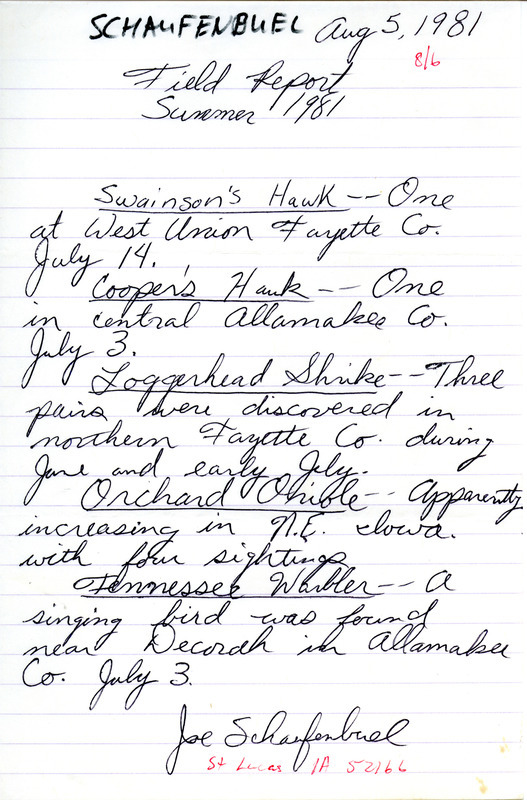 SCHAUFENBUEL Aug 5, 1981
8/6
Field Report
Summer 1981
Swainson's Hawk -- One
at West Union Fayette Co.
July 14.
Cooper's Hawk -- One
in central Allamakee Co.
July 3.
Loggerhead Shrike -- Three
pairs were discovered in
northern Fayette Co. during
June and early July.
Orchard Oriole -- Apparently
increasing in N.E. Iowa.
with four sightings
Tennessee Warbler -- A
singing bird was found
near Decorah in Allamakee
Co. July 3.
Joe Schaufenbuel
St Lucas IA 52166